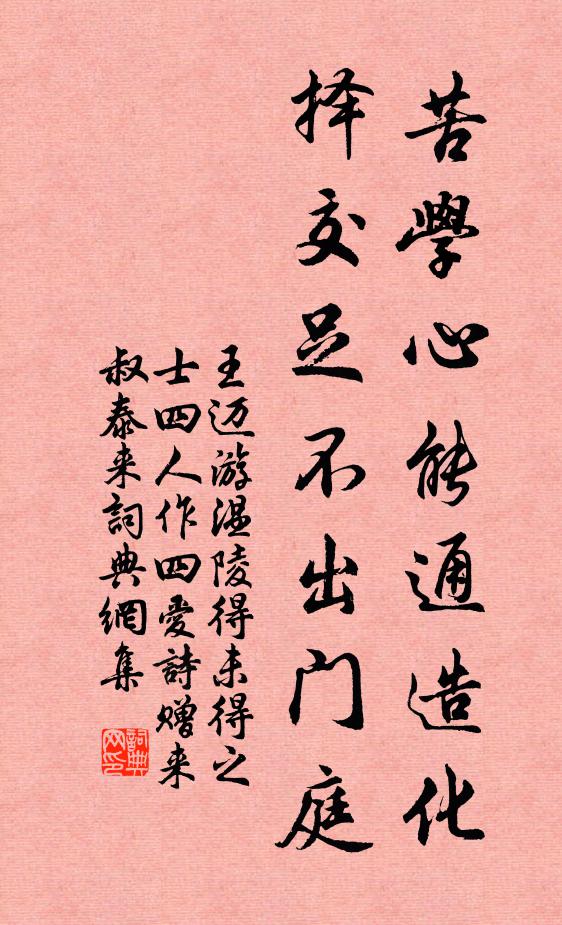 苦學心能通造化
择交足不出門庭
王迈游温陵得未得之
士四人作四爱詩赠来
叔泰来詞典網集
詞典网印